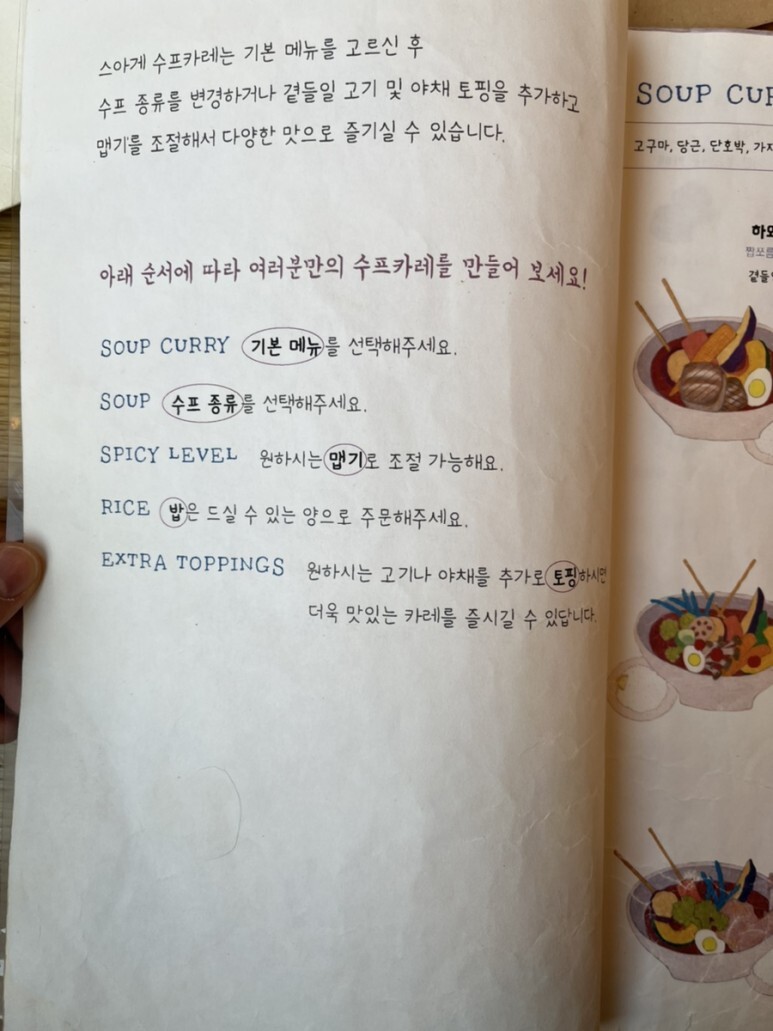 스아게 수프카레는 기본 메뉴를 고르신 후
수프 종류를 변경하거나 곁들일 고기 및 야채 토핑을 추가하고
맵기를 조절해서 다양한 맛으로 즐기실 수 있습니다.
아래 순서에 따라 여러분만의 수프카레를 만들어 보세요!
SOUP CURRY 기본 메뉴를 선택해주세요.
SOUP 수프 종류를 선택해주세요.
SPICY LEVEL 원하시는 맵기로 조절 가능해요.
RICE 밥은 드실 수 있는 양으로 주문해주세요.
EXTRA TOPPINGS 원하시는 고기나 야채를 추가로 토핑하시면
더욱 맛있는 카레를 즐시길 수 있답니다.
SOUP
고구마, 당근, 단호박,